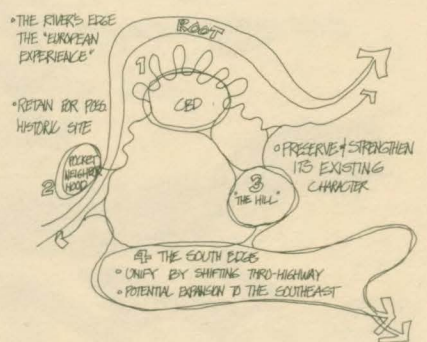 • THE RIVER'S EDGE
THE "EUROPEAN
EXPERIENCE"
ROOT
1
CBD
• RETAIN FOR POSS.
HISTORIC SITE
POCKET
NEIGHBOR
HOOD
2
• PRESERVE & STRENGTHEN
ITS EXISTING
CHARACTER
3
"THE HILL"
4 THE SOUTH EDGE
• UNIFY BY SHIFTING THRU-HIGHWAY
• POTENTIAL EXPANSION TO THE SOUTHEAST